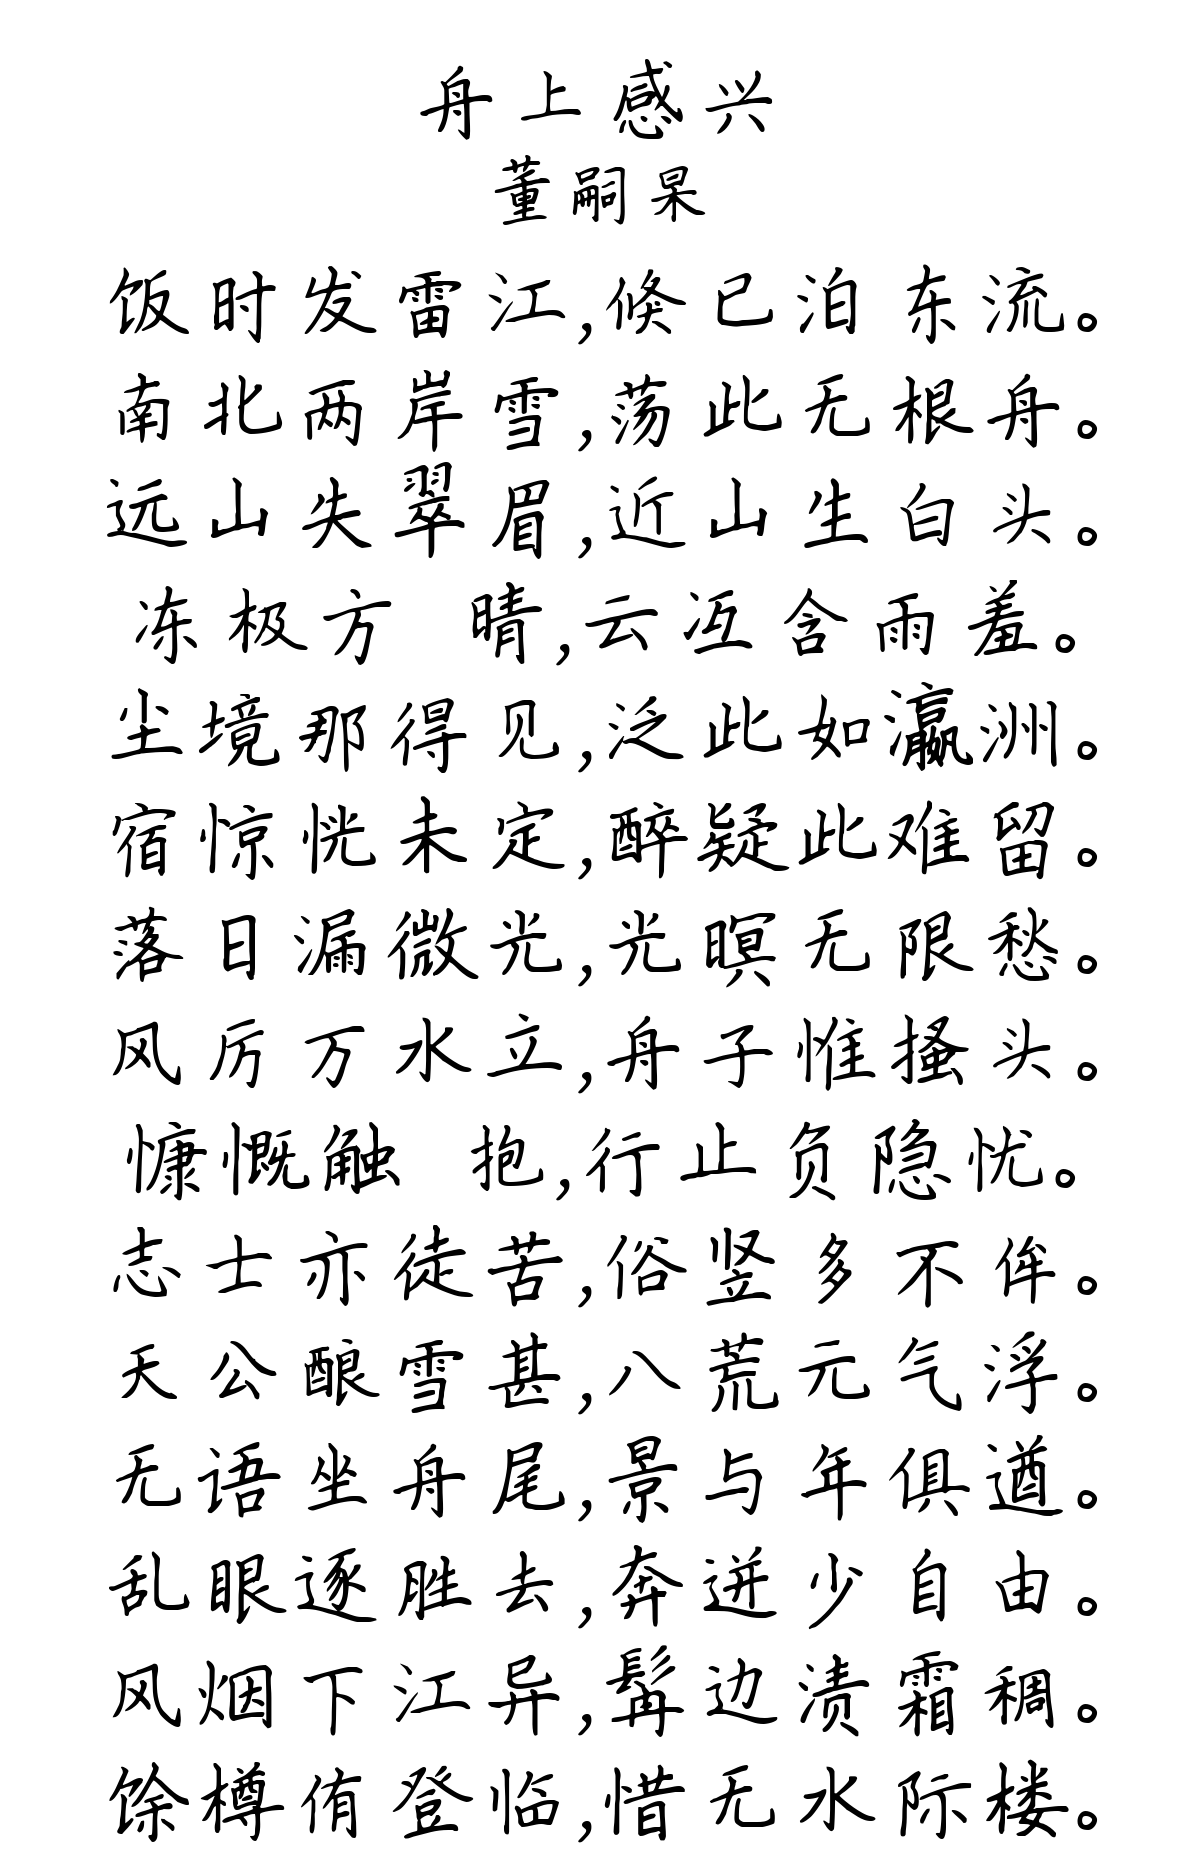 舟上感兴
董嗣杲
饭时发雷江,倏已泊东流。
南北两岸雪,荡此无根舟。
远山失翠眉,近山生白头。
冻极方 晴,云冱含雨羞。
尘境那得见,泛此如瀛洲。
宿惊恍未定,醉疑此难留。
落日漏微光,光暝无限愁。
风厉万水立,舟子惟搔头。
慷慨触 抱,行止负隐忧。
志士亦徒苦,俗竖多不侔。
天公酿雪甚,八荒元气浮。
无语坐舟尾,景与年俱遒。
乱眼逐胜去,奔迸少自由。
风烟下江异,髯边渍霜稠。
馀樽侑登临,惜无水际楼。